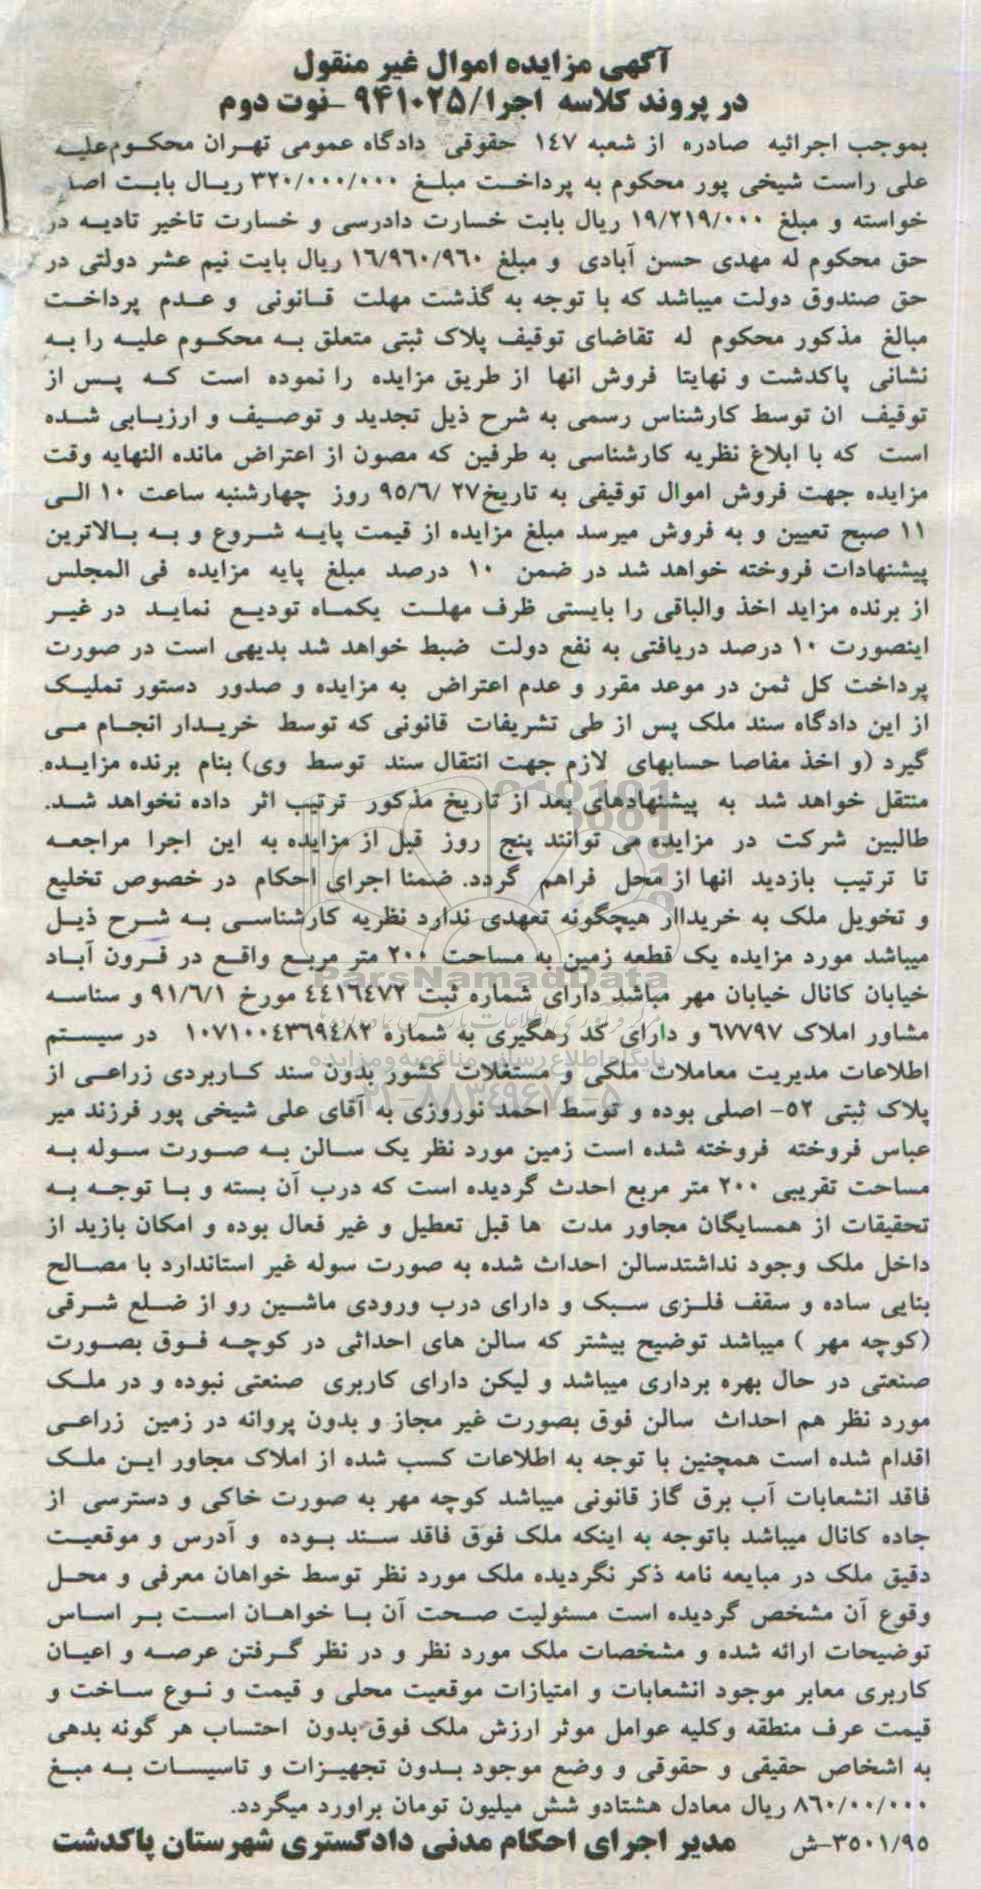 آگهی مزایده اموال غیر منقول
در پروند کلاسه اجرا/۹۴۱۰۲۵ -نوت دوم
بموجب اجرائیه صادره از شعبه ۱۴۷ حقوقی دادگاه عمومی تهران محکوم‌علیه
علی راست شیخی پور محکوم به پرداخت مبلغ ۳۲۰/۰۰۰/۰۰۰ ریال بابت اصد
خواسته و مبلغ ۱۹/۲۱۹/۰۰۰ ریال بابت خسارت دادرسی و خسارت تاخیر تادیه در
حق محکوم له مهدی حسن آبادی و مبلغ ۱۶/۹۶۰/۹۶۰ ریال بایت نیم عشر دولتی در
حق صندوق دولت میباشد که با توجه به گذشت مهلت قانونی و عدم پرداخت
مبالغ مذکور محکوم له تقاضای توقیف پلاک ثبتی متعلق به محکوم علیه را به
نشانی پاکدشت و نهایتا فروش انها از طریق مزایده را نموده است که پس از
توقیف ان توسط کارشناس رسمی به شرح ذیل تجدید و توصیف و ارزیابی شده
است که با ابلاغ نظریه کارشناسی به طرفین که مصون از اعتراض مانده النهایه وقت
مزایده جهت فروش اموال توقیفی به تاریخ۲۷ /۹۵/۶ روز چهارشنبه ساعت ۱۰ الی
۱۱ صبح تعیین و به فروش میرسد مبلغ مزایده از قیمت پایه شروع و به بالاترین
پیشنهادات فروخته خواهد شد در ضمن ۱۰ درصد مبلغ پایه مزایده فی المجلس
از برنده مزاید اخذ والباقی را بایستی ظرف مهلت یکماه تودیع نماید در غیر
اینصورت ۱۰ درصد دریافتی به نفع دولت ضبط خواهد شد بدیهی است در صورت
پرداخت کل ثمن در موعد مقرر و عدم اعتراض به مزایده و صدور دستور تملیک
از این دادگاه سند ملک پس از طی تشریفات قانونی که توسط خریدار انجام می
گیرد (و اخذ مفاصا حسابهای لازم جهت انتقال سند توسط وی) بنام برنده مزایده
منتقل خواهد شد به پیشنهادهای بعد از تاریخ مذکور ترتیب اثر داده نخواهد شد.
طالبین شرکت در مزایده می توانند پنج روز قبل از مزایده به این اجرا مراجعه
تا ترتیب بازدید انها از محل فراهم گردد. ضمنا اجرای احکام در خصوص تخلیع
و تخویل ملک به خریداار هیچگونه تعهدی ندارد نظریه کارشناسی به شرح ذیل
میباشد مورد مزایده یک قطعه زمین به مساحت ۲۰۰ متر مربع واقع در فرون آباد
ParsNamadData
خیابان کانال خیابان مهر مباشد دارای شماره ثبت ۴۴۱۶۴۷۲ مورخ ۹۱/۶/۱ و سناسه
مشاور املاک ۶۷۷۹۷ و دارای کد رهگیری به شماره ۱۰۷۱۰۰۴۳۶۹۴۸۲ در سیستم
پایگاه اطلاع رسانی مناقصه و مزایده
اطلاعات مدیریت معاملات ملکی و مستغلات کشور بدون سند کاربردی زراعی از
۰۲۱-۸۸۳۴۹۶۷۰-۵
پلاک ثبتی ۵۲- اصلی بوده و توسط احمد نوروزی به آقای علی شیخی پور فرزند میر
عباس فروخته فروخته شده است زمین مورد نظر یک سالن به صورت سوله به
مساحت تقریبی ۲۰۰ متر مربع احدث گردیده است که درب آن بسته و با توجه به
تحقیقات از همسایگان مجاور مدت ها قبل تعطیل و غیر فعال بوده و امکان بازید از
داخل ملک وجود نداشتدسالن احداث شده به صورت سوله غیر استاندارد با مصالح
بنایی ساده و سقف فلزی سبک و دارای درب ورودی ماشین رو از ضلع شرقی
(کوچه مهر ) میباشد توضیح بیشتر که سالن های احداثی در کوچه فوق بصورت
صنعتی در حال بهره برداری میباشد و لیکن دارای کاربری صنعتی نبوده و در ملک
مورد نظر هم احداث سالن فوق بصورت غیر مجاز و بدون پروانه در زمین زراعی
اقدام شده است همچنین با توجه به اطلاعات کسب شده از املاک مجاور این ملک
فاقد انشعابات آب برق گاز قانونی میباشد کوچه مهر به صورت خاکی و دسترسی از
جاده کانال میباشد باتوجه به اینکه ملک فوق فاقد سند بوده و آدرس و موقعیت
دقیق ملک در مبایعه نامه ذکر نگردیده ملک مورد نظر توسط خواهان معرفی و محل
وقوع آن مشخص گردیده است مسئولیت صحت آن با خواهان است بر اساس
توضیحات ارائه شده و مشخصات ملک مورد نظر و در نظر گرفتن عرصه و اعیان
کاربری معابر موجود انشعابات و امتیازات موقعیت محلی و قیمت و نوع ساخت و
قیمت عرف منطقه وکلیه عوامل موثر ارزش ملک فوق بدون احتساب هر گونه بدهی
به اشخاص حقیقی و حقوقی و وضع موجود بدون تجهیزات و تاسیسات به مبغ
۸۶۰/۰۰/۰۰۰ ریال معادل هشتادو شش میلیون تومان براورد میگردد.
۳۵۰۱/۹۵-ش مدیر اجرای احکام مدنی دادگستری شهرستان پاکدشت